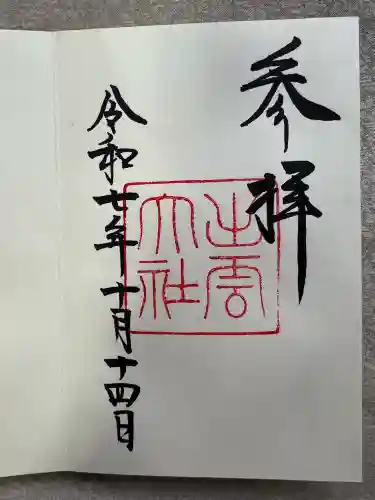 参拝
出雲
大社
令和七年十月十四日